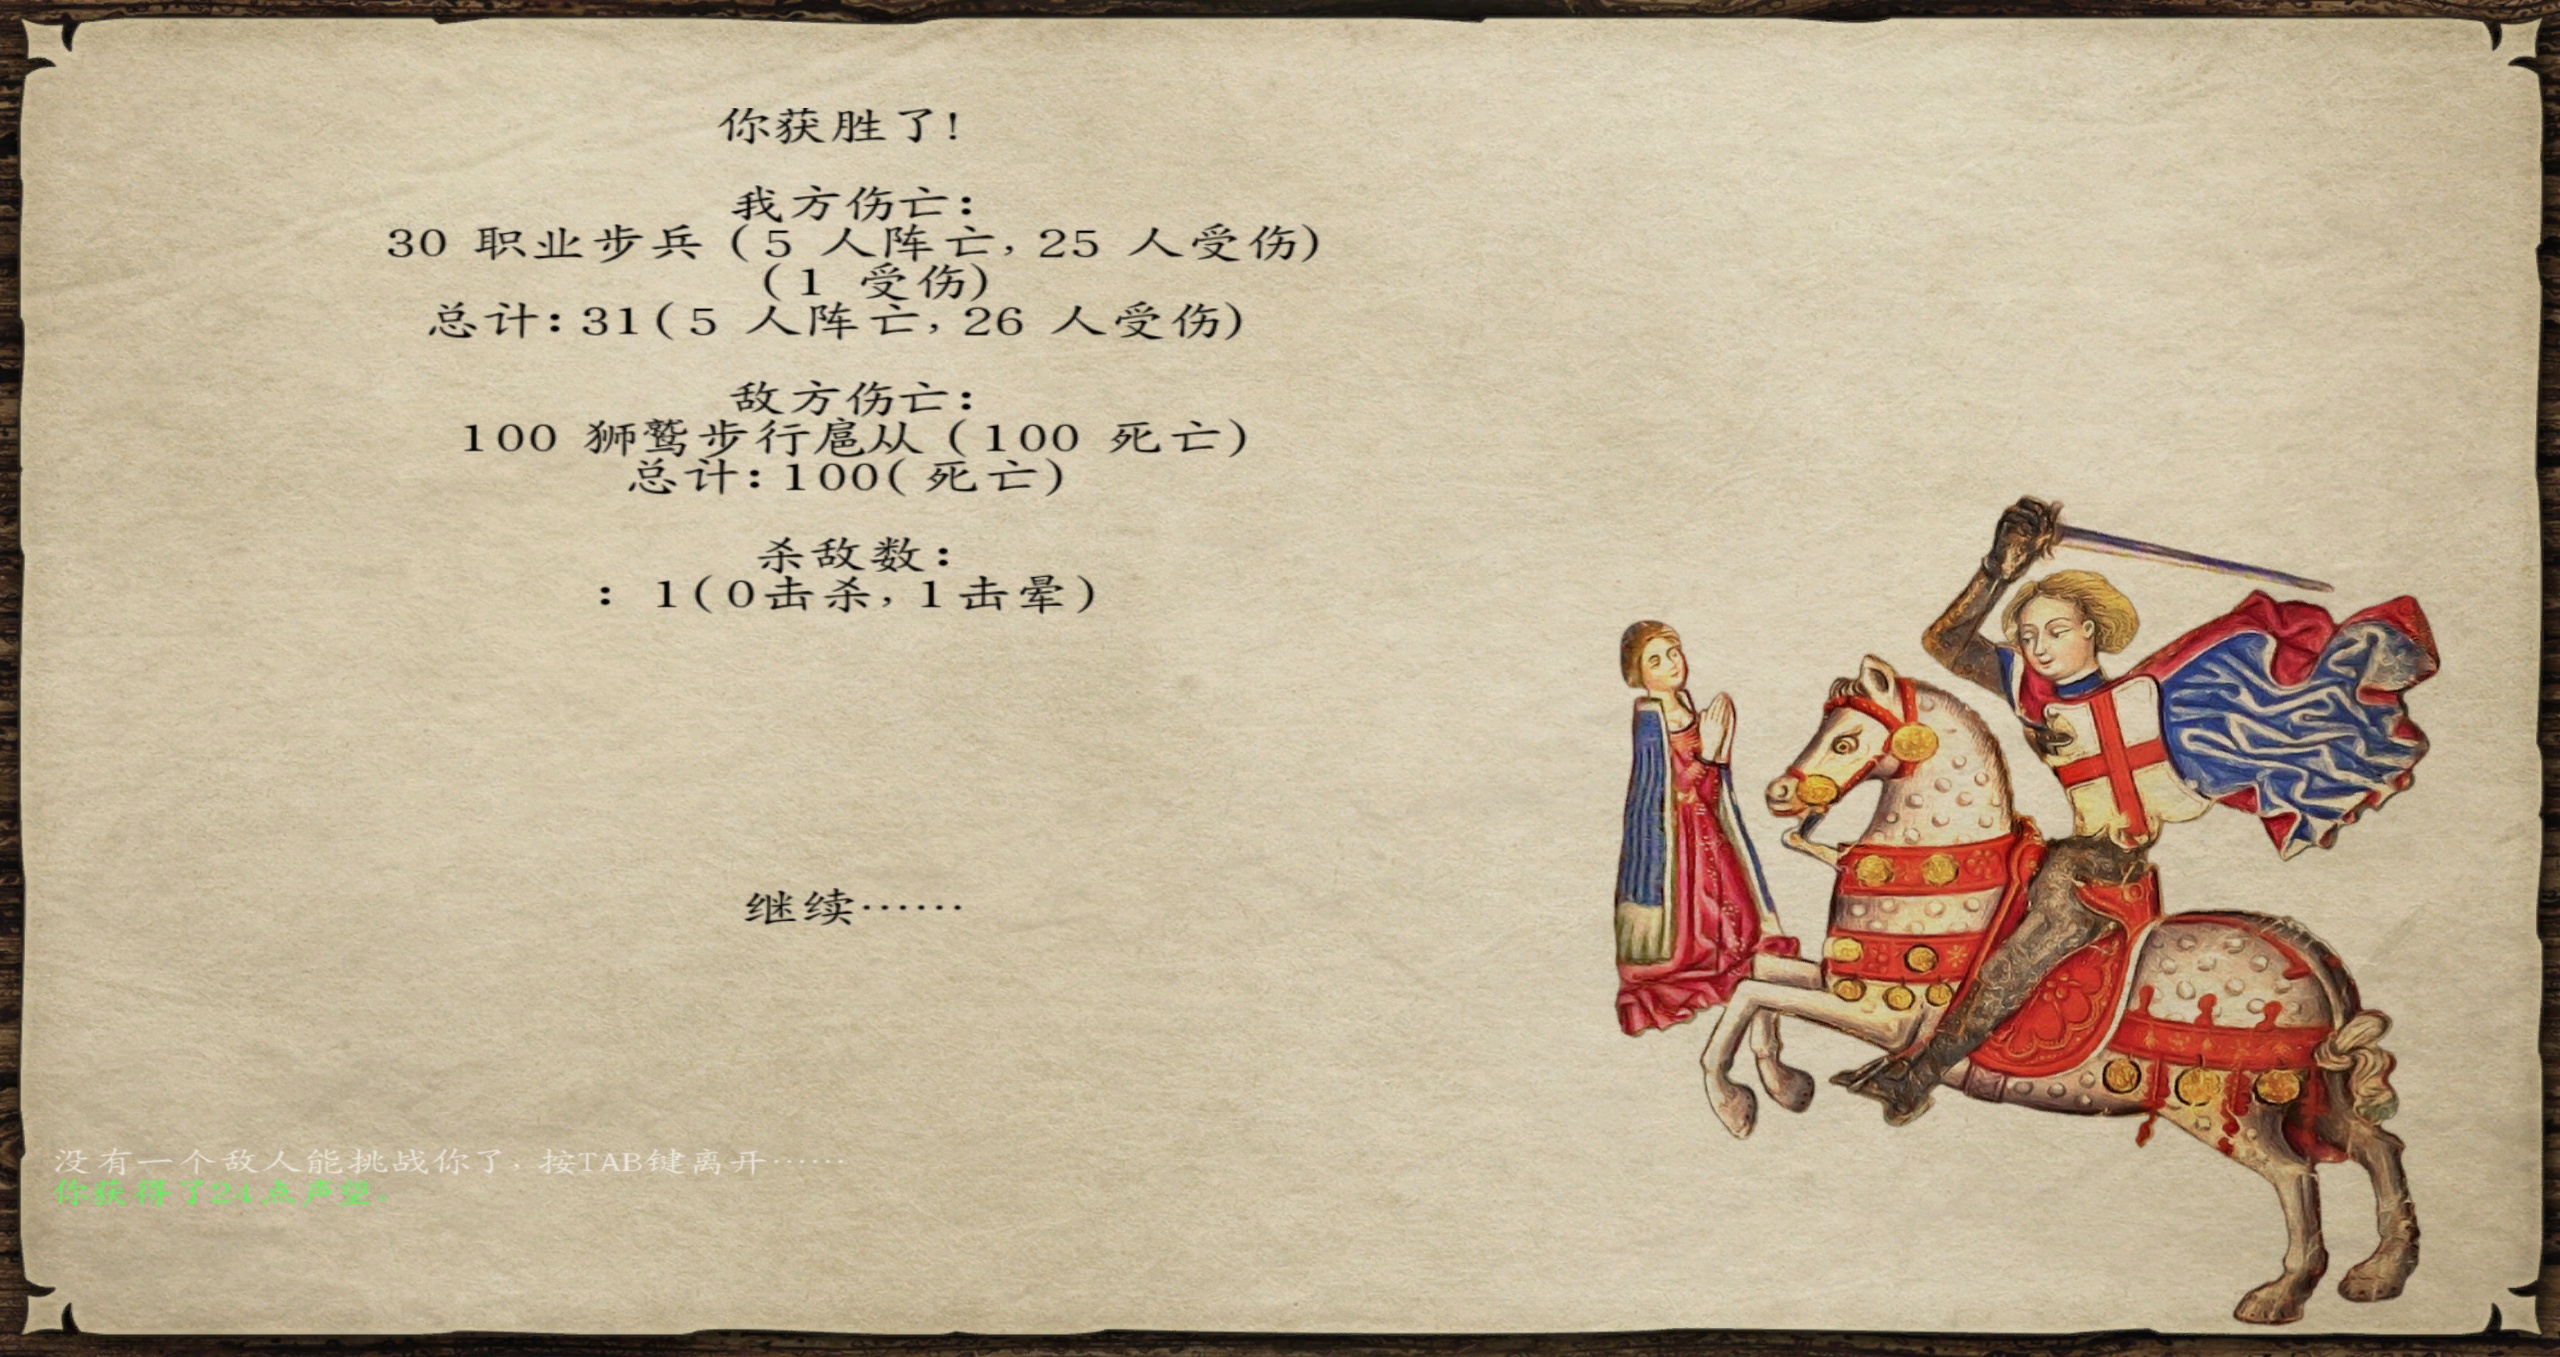 你获胜了!
我方伤亡：
30 职业步兵 (5 人阵亡, 25 人受伤)
(1 受伤)
总计: 31(5 人阵亡, 26 人受伤)
敌方伤亡：
100 狮鹫步行扈从 (100 死亡)
总计: 100(死亡)
杀敌数：
： 1(0击杀, 1击晕)
继续……
没有一个敌人能挑战你了, 按TAB键离开……
你获得了24点声望。